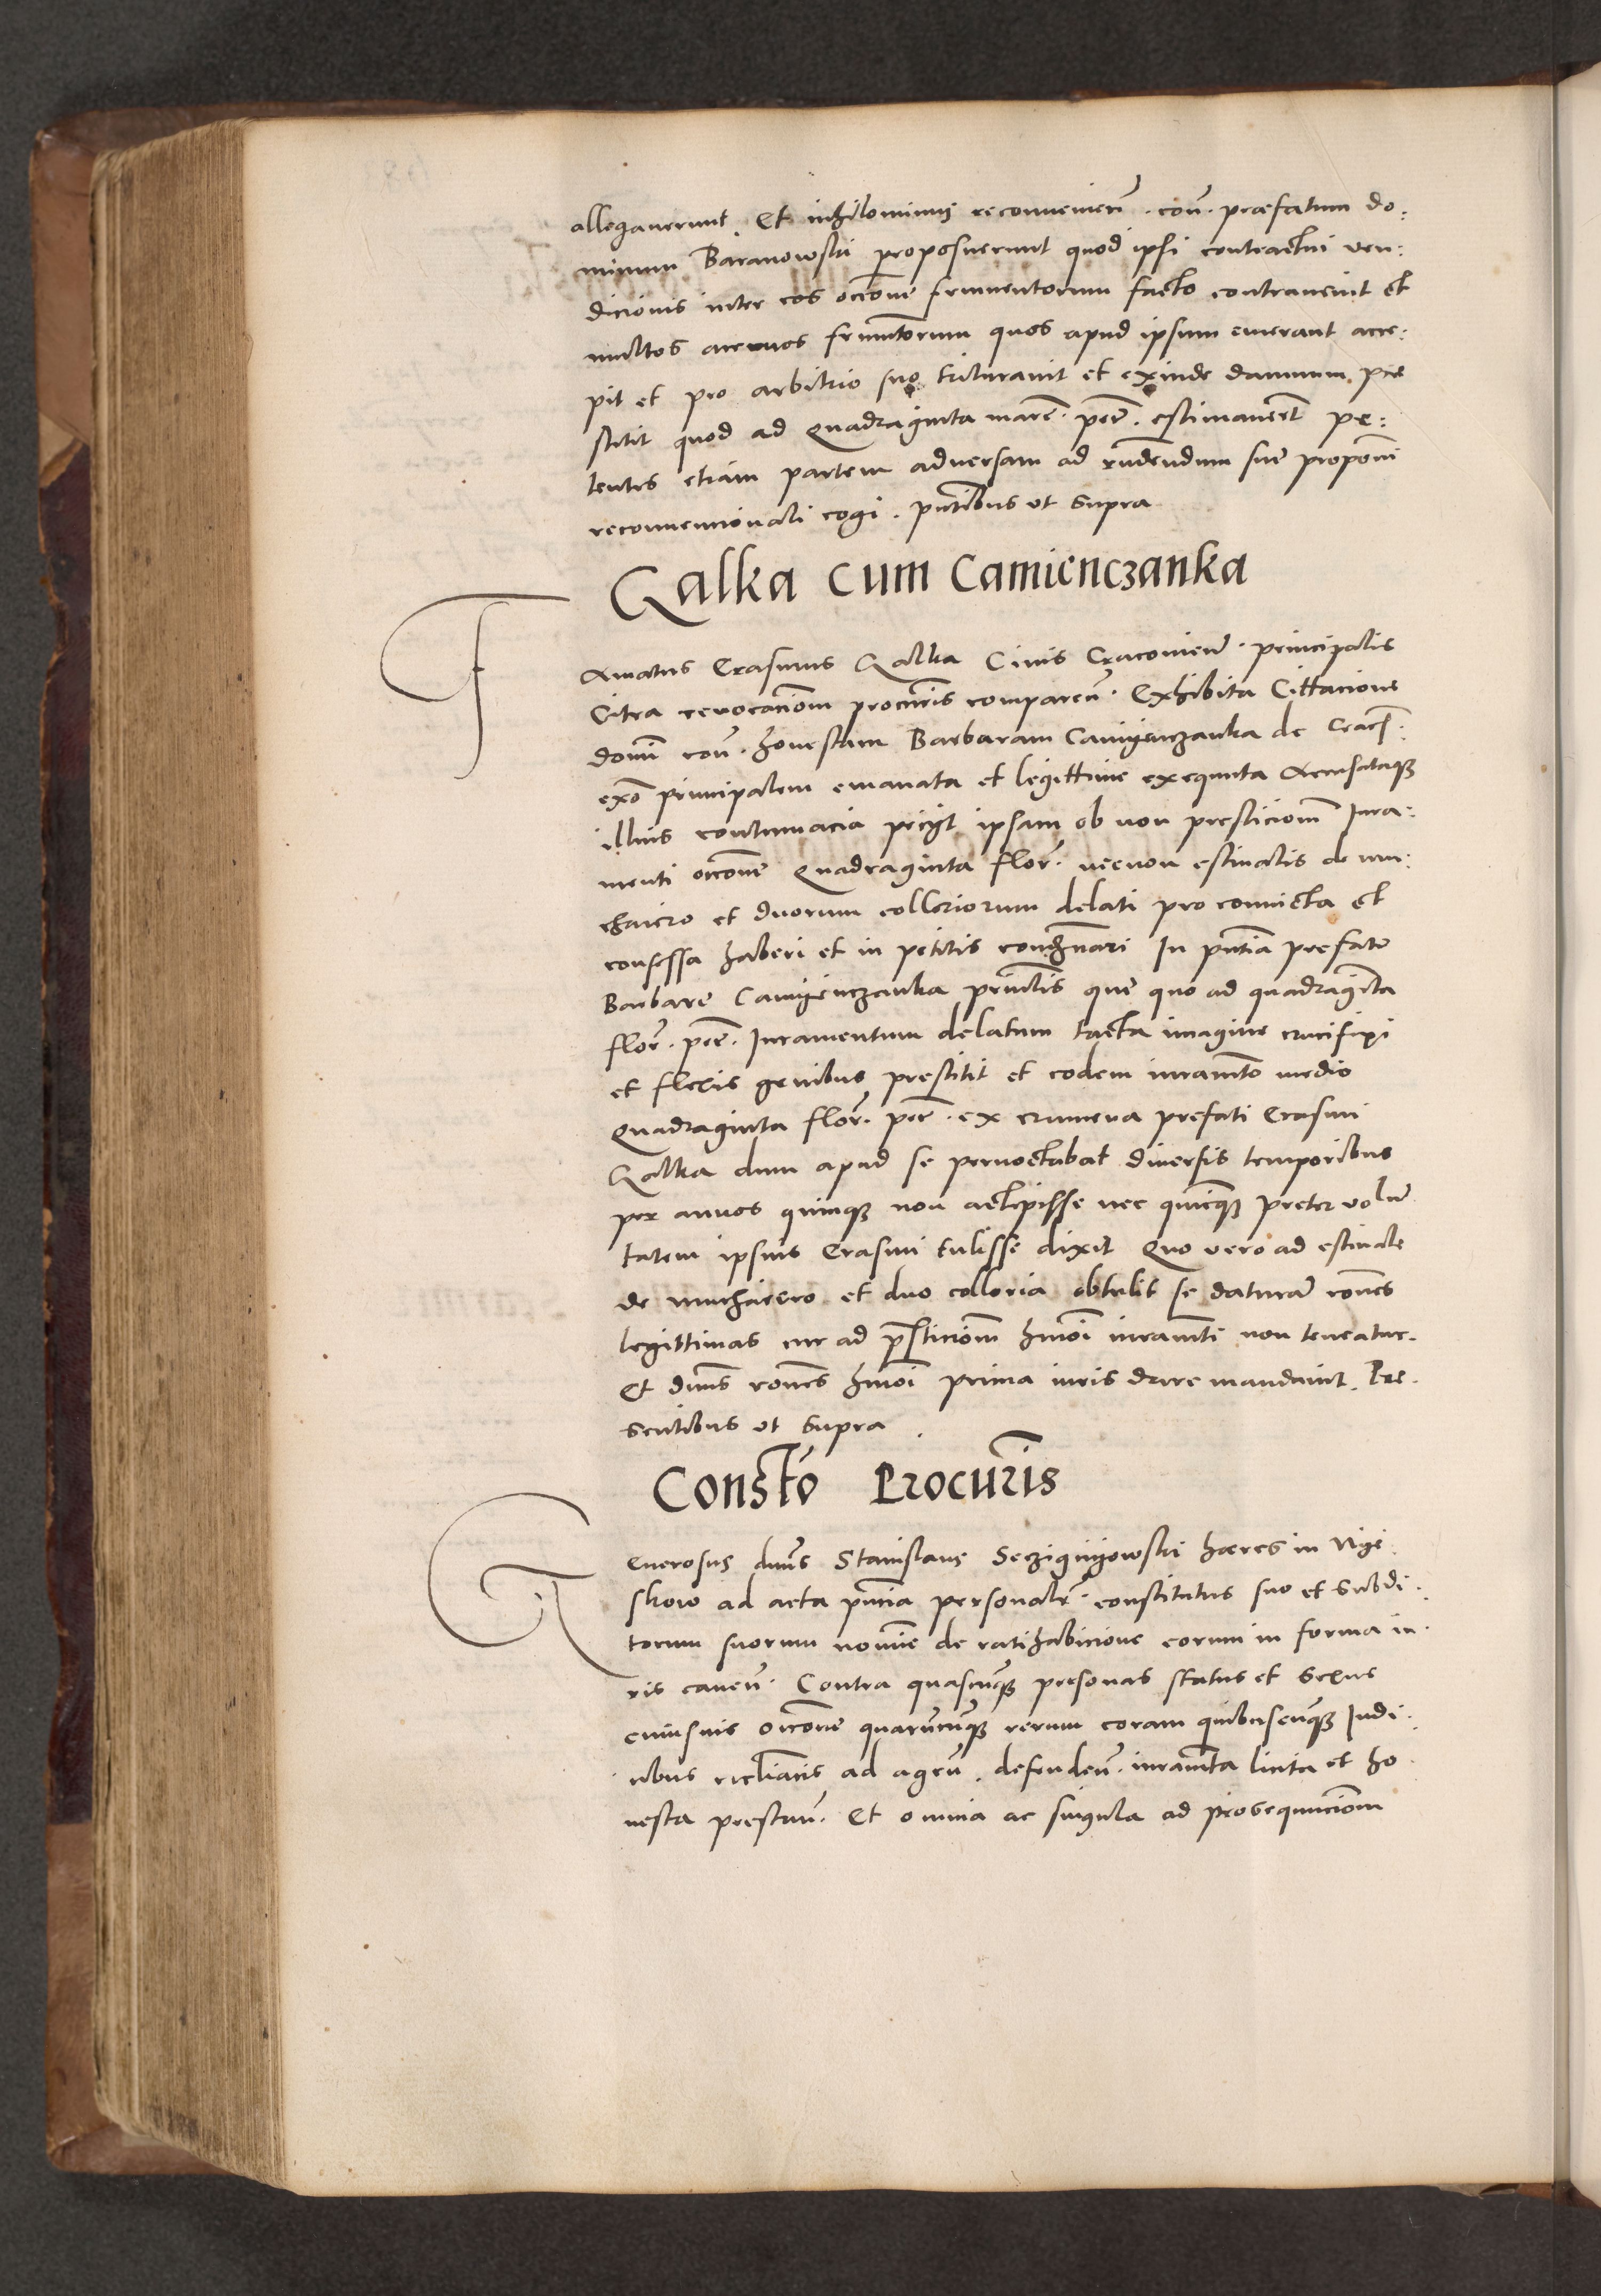 allegaverunt. Et inhilominus reconvenien̄. con̄. præfatum do:
minum Baranowski proposuerunt quod ipsi contractui ven:
dicionis inter eos occ̄one frumentorum facto contravenit et
multos acervos frum̄torum quos apud ipsum emerant acce:
pit et pro arbitrio suo trituravit et exinde damnum pre
stitit quod ad quadraginta marc̄. pec̄. estimaver̄t pe:
tentes etiam partem adversam ad rn̄dendum sue propon̄i
reconvencionali cogi. pn̄tibus ut supra
Galka cum Camienczanka
Famatus Erasmus Galka Civis Cracovien̄. principalis
Citra revocac̄iom procur̄is comparen̄. Exhibita Cittacione
domi con̄. honestam Barbaram Camyenczanka de Crac̄.
exo principalem emanata et legittime exequuta Accusataq
illius contumacia peciit ipsam ob non presticiom̄ Iura:
menti occ̄one quadraginta flor̄. necnon estivalis de mu:
chaiero et duorum colleriorum delati pro convicta et
confessa haberi et in petitis condemnari In pn̄tia prefate
Barbare Camyenczanka prin̄clis que quo ad quadraginta
flor̄. pec̄. Iuramentum delatum tacta imagine crucifixi
et flexis genibus prestitit et eodem iuram̄to medio
quadraginta flor̄. pec̄. ex crumena prefati Erasmi
Galka dum apud se pernoctabat diversis temporibus
per annos quinq non accepisse nec quicq preter volun̄
tatem ipsius Erasmi tulisse dixit Quo vero ad estivale
de muchaiero et duo colloria obtulit se daturam̄ ron̄es
legittimas cur ad p̄sticiom̄ hmoi iuram̄ti non teneatur.
Et dn̄us ron̄es hmoi prima iuris dare mandavit. Pre.
sentibus ut supra
Constō Procur̄is
Generosus dn̄us Stanislaus Secziginyowski hæres in Nye
skow ad acta pn̄tia personalr̄. constitutus suo et subdi.
torum suorum noīe de ratihabicione eorum in forma iu.
ris caven̄. Contra quascunq personas status et sexus
cuiusvis occ̄one quarūcunq rerum coram quibuscunq Iudi.
cibus eccl̄iacis ad agen̄. defenden̄. iuram̄ta licita et ho
nesta prestan̄. Et omnia ac singula ad prosequuciom̄